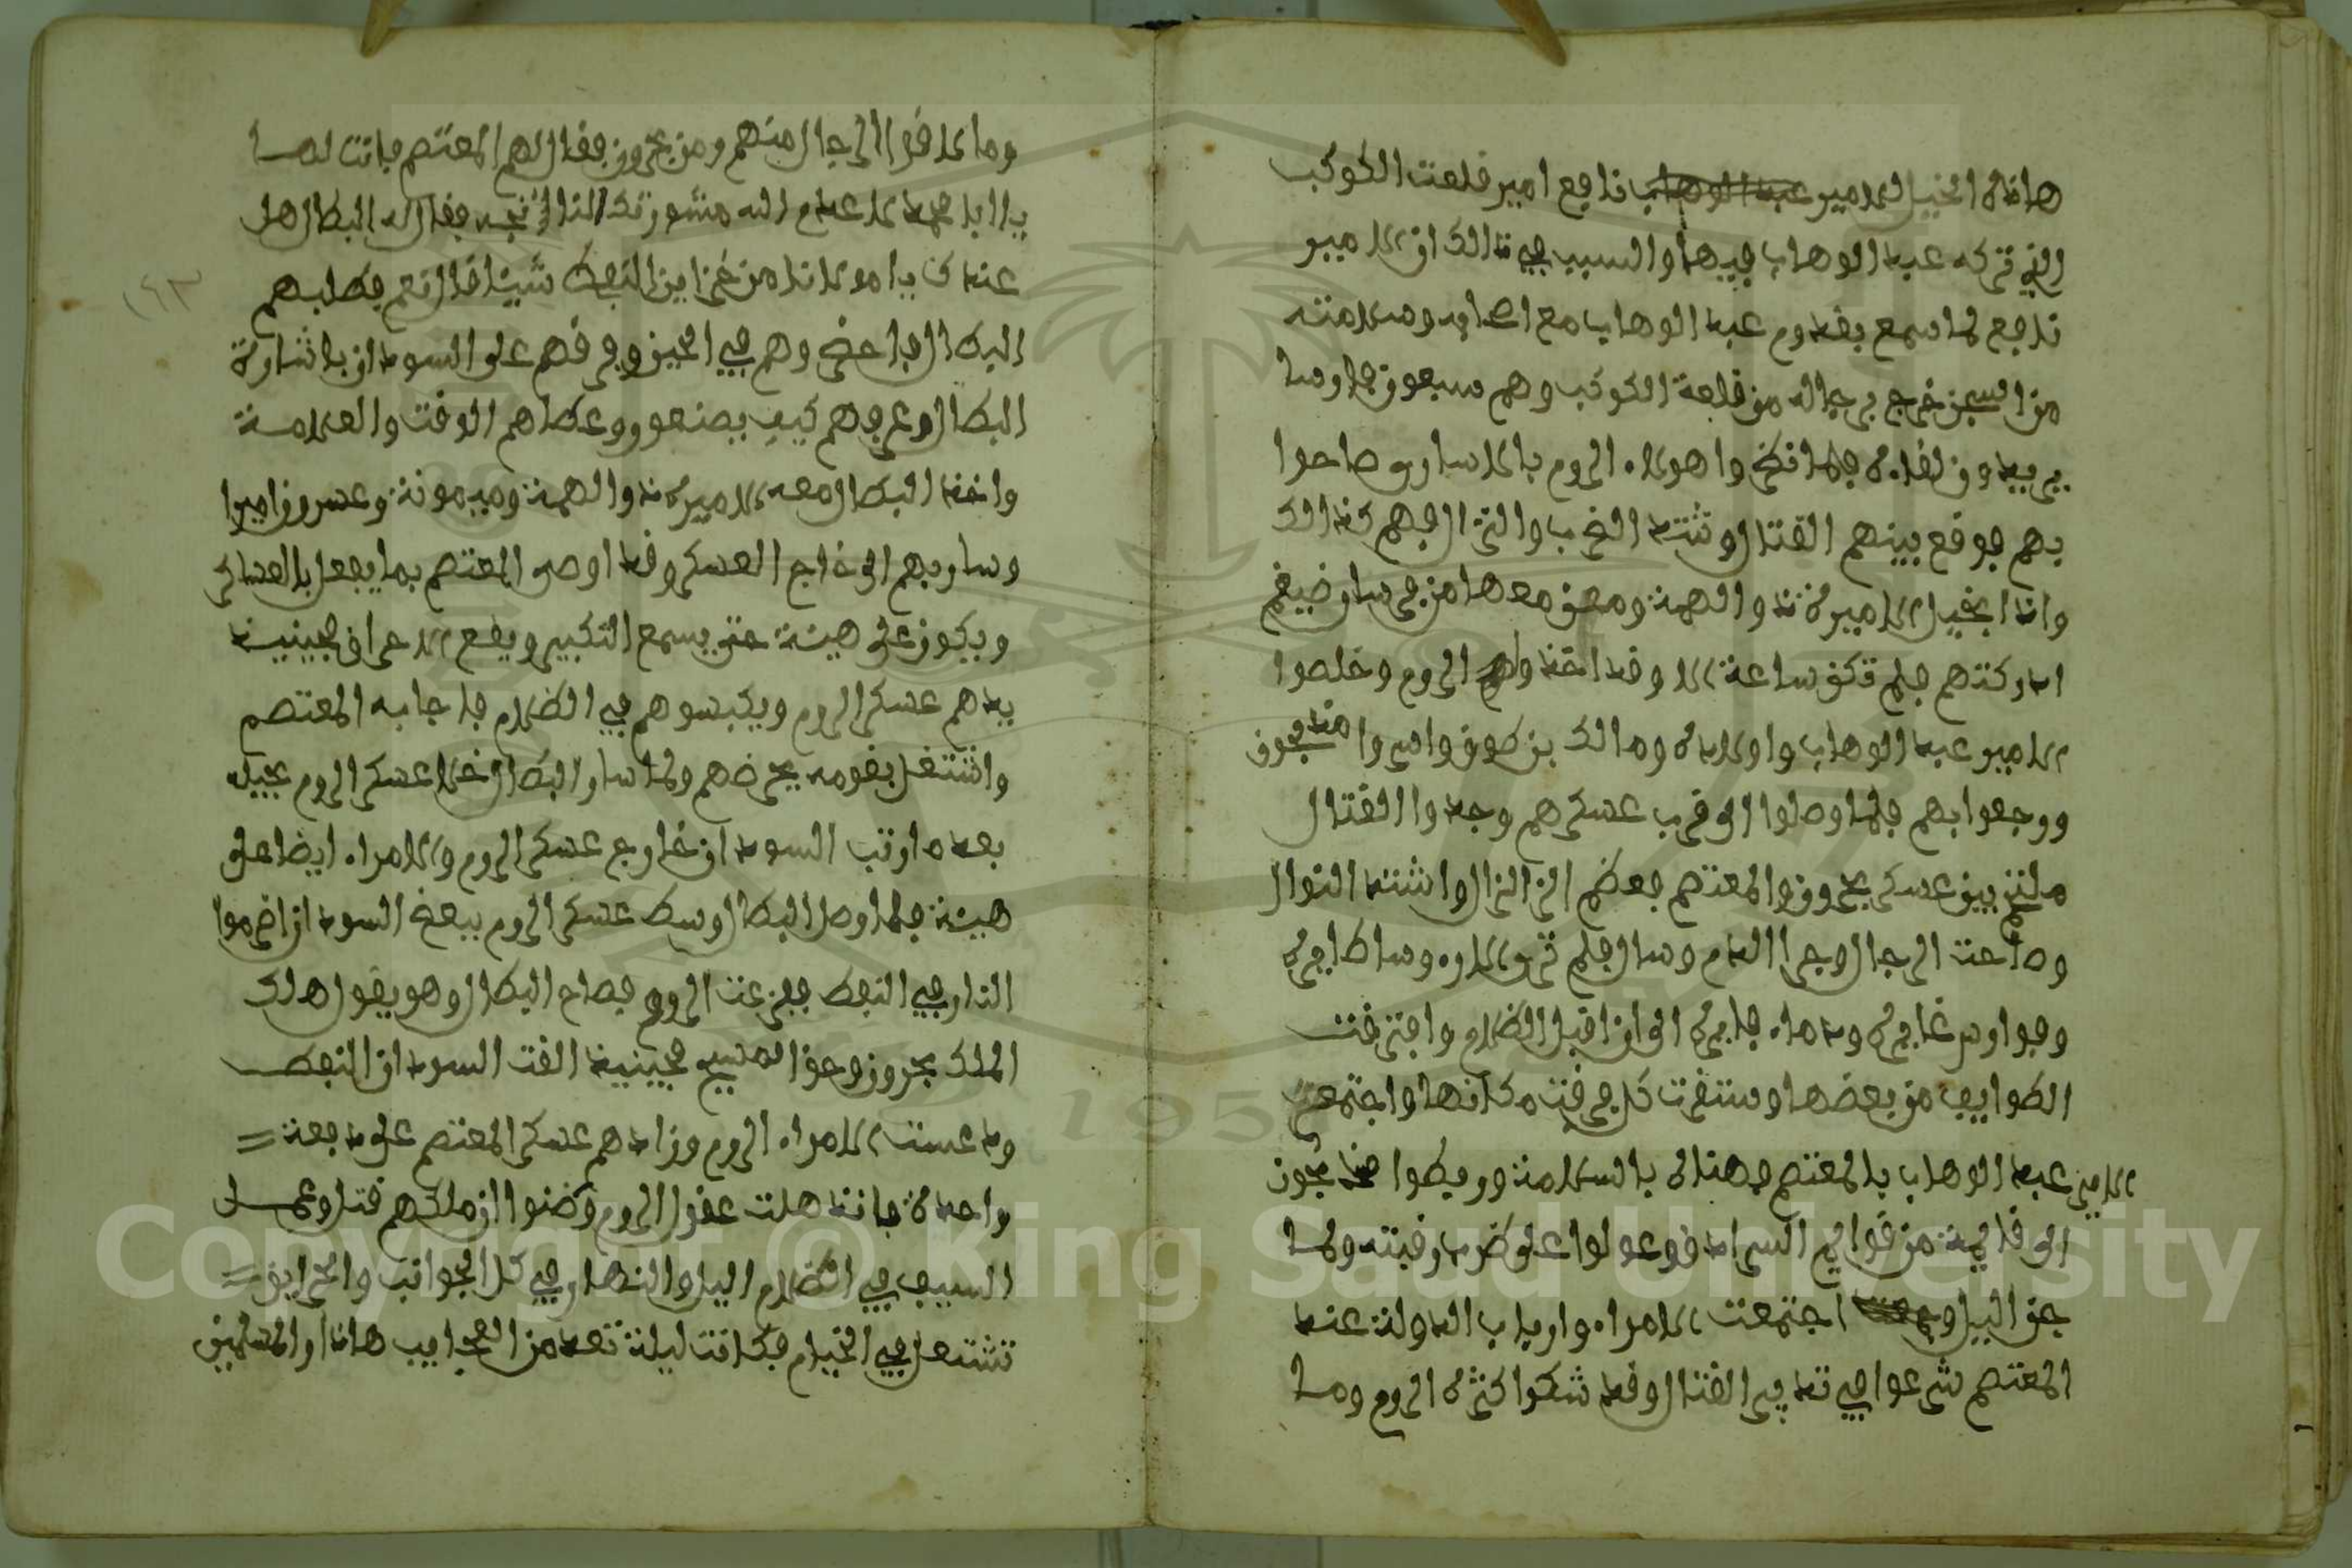 هاذه الخيل الامير نافع امير قلعت الكوكب
الذي تركه عبد الوهاب فيها والسبب في ذالك ان الامير
نافع لما سمع بقدوم عبد الوهاب مع اصحابه وسلامته
من السجن خرج برجاله من قلعة الكوكب وهم سبعون فارسا
يريدون لقاءه فلما نظر واهولاء الروم بالاسارى صاحوا
بهم فوقع بينهم القتال وشتد الضرب والنزال فهم كذالك
واذا بخيل الاميرة ذوالهمة ومعن معها من فرسان ضيغم
ادركتهم فلم تكن ساعة الا وقد اخذوا الروم وخلصوا
الامير عبد الوهاب واولاده ومالك بن طوق واسروا
ورجعوا بهم فلما وصلوا الى قرب عسكرهم وجدوا القتال
بين عسكر بحرون والمعتصم فعظم النزال واشتد النوال
وصاحت الرجال وجرا الدم وسال فلم ترى الا روسا طايرة
وجوادس غايرة ودماء فايرة الى ان اقبل الظلام وافترقت
الطوايف من بعضها وستقرت كل فرقة مكانها واجتمع
الامير عبد الوهاب بالمعتصم فهناه بالسلامة وربطوا
الى قايمة من قوايم السرادق وعولوا على ضرب رقبته ولما
جن اليل اجتمعت الامراء وارباب الدولة عند
المعتصم شرعوا في تدبير القتال وقد شكوا كثرة الروم وما
وما لاقوا الرجال منهم ومن بحرون فقال لهم المعتصم فانت لها
يا ابا محمد لا عدم الله مشورتك فقال له البطال هل
عندك يا مولانا من خزاين النفط شيئا قال نعم فطلبهم
البطال فاحضر وهم في الحين وفرقهم على السودان باشارة
البطال وعرفهم كيف يصنعوا وعطاهم الوقت والعلامة
واخذ البطال معه الاميرة ذوالهمة وميمونة وعسرون اميرا
وسار بهم الى خارج العسكر وقد اوصى المعتصم بما يفعل بالعساكر
ويكون على هيئة حتى يسمع التكبير ويقع الاحراق فحينيذ
يدهم عسكر الروم ويكبسوهم في الظلام فاجابه المعتصم
واشتغل بقومه يحرضهم ولما سار البطال دخل عسكر الروم بحيله
بعد ما رتب السودان خارج عسكر الروم والامراء ايضا على
هيئة فلما وصل البطال وسط عسكر الروم ببعض السودان اضرموا
النار في النفط ففزعت الروم فصاح البطال وهو يقول هلك
الملك بحرون وحق المسيح فحينيذ القت السودان النفط
ودعست الامراء الروم وزادهم عسكر المعتصم على دفعة
واحدة فاندهلت عقول الروم وضنوا ان ملكهم قتل وعمل
السيف في الظلام اليل والنهار في كل الجوانب والحرايق
تشتعل في الخيام فكانت ليلة تعد من العجايب هاذا والمسلمين